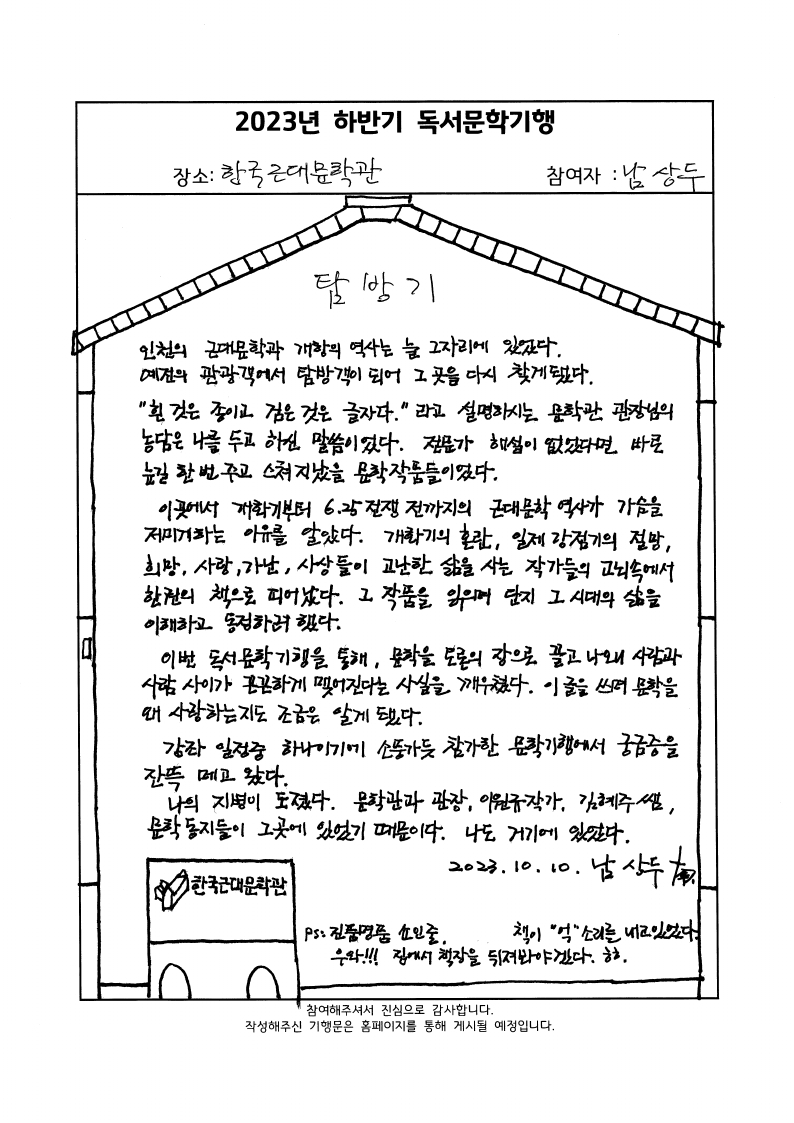 2023년 하반기 독서문학기행
장소: 한국근대문학관 참여자 : 남상두
탐방기
인천의 근대문학과 개항의 역사는 늘 그자리에 있었다.
예전의 관광객에서 탐방객이 되어 그 곳을 다시 찾게 됐다.
"흰 것은 종이고 검은 것은 글자다." 라고 설명하시는 문학관 관장님의
농담은 나를 두고 하신 말씀이었다. 전문가 해설이 없었다면 바른
눈길 한 번 주고 스쳐 지났을 문학작품들이었다.
이곳에서 개화기부터 6.25 전쟁 전까지의 근대문학 역사가 가슴을
저미게하는 이유를 알았다. 개화기의 혼란, 일제 강점기의 절망,
희망, 사랑, 가난, 사상들이 고난한 삶을 사는 작가들의 고뇌속에서
한권의 책으로 피어났다. 그 작품을 읽으며 단지 그 시대의 삶을
이해하고 동정하려 했다.
이번 독서문학기행을 통해, 문학을 토론의 장으로 끌고 나와 사람과
사람 사이가 끈끈하게 맺어진다는 사실을 깨우쳤다. 이 글을 쓰며 문학을
왜 사랑하는지도 조금은 알게 됐다.
강좌 일정중 하나이기에 소풍가듯 참가한 문학기행에서 궁금증을
잔뜩 메고 왔다.
나의 지병이 도졌다. 문학관과 관장, 이원규작가, 김혜주쌤,
문학 동지들이 그곳에 있었기 때문이다. 나도 거기에 있었다.
2023. 10. 10. 남상두
한국근대문학관
PS: 진품명품 쇼인줄, 책이 "억"소리를 내고있었다.
우와!!! 집에서 책장을 뒤져봐야겠다. ㅎㅎ.
참여해주셔서 진심으로 감사합니다.
작성해주신 기행문은 홈페이지를 통해 게시될 예정입니다.